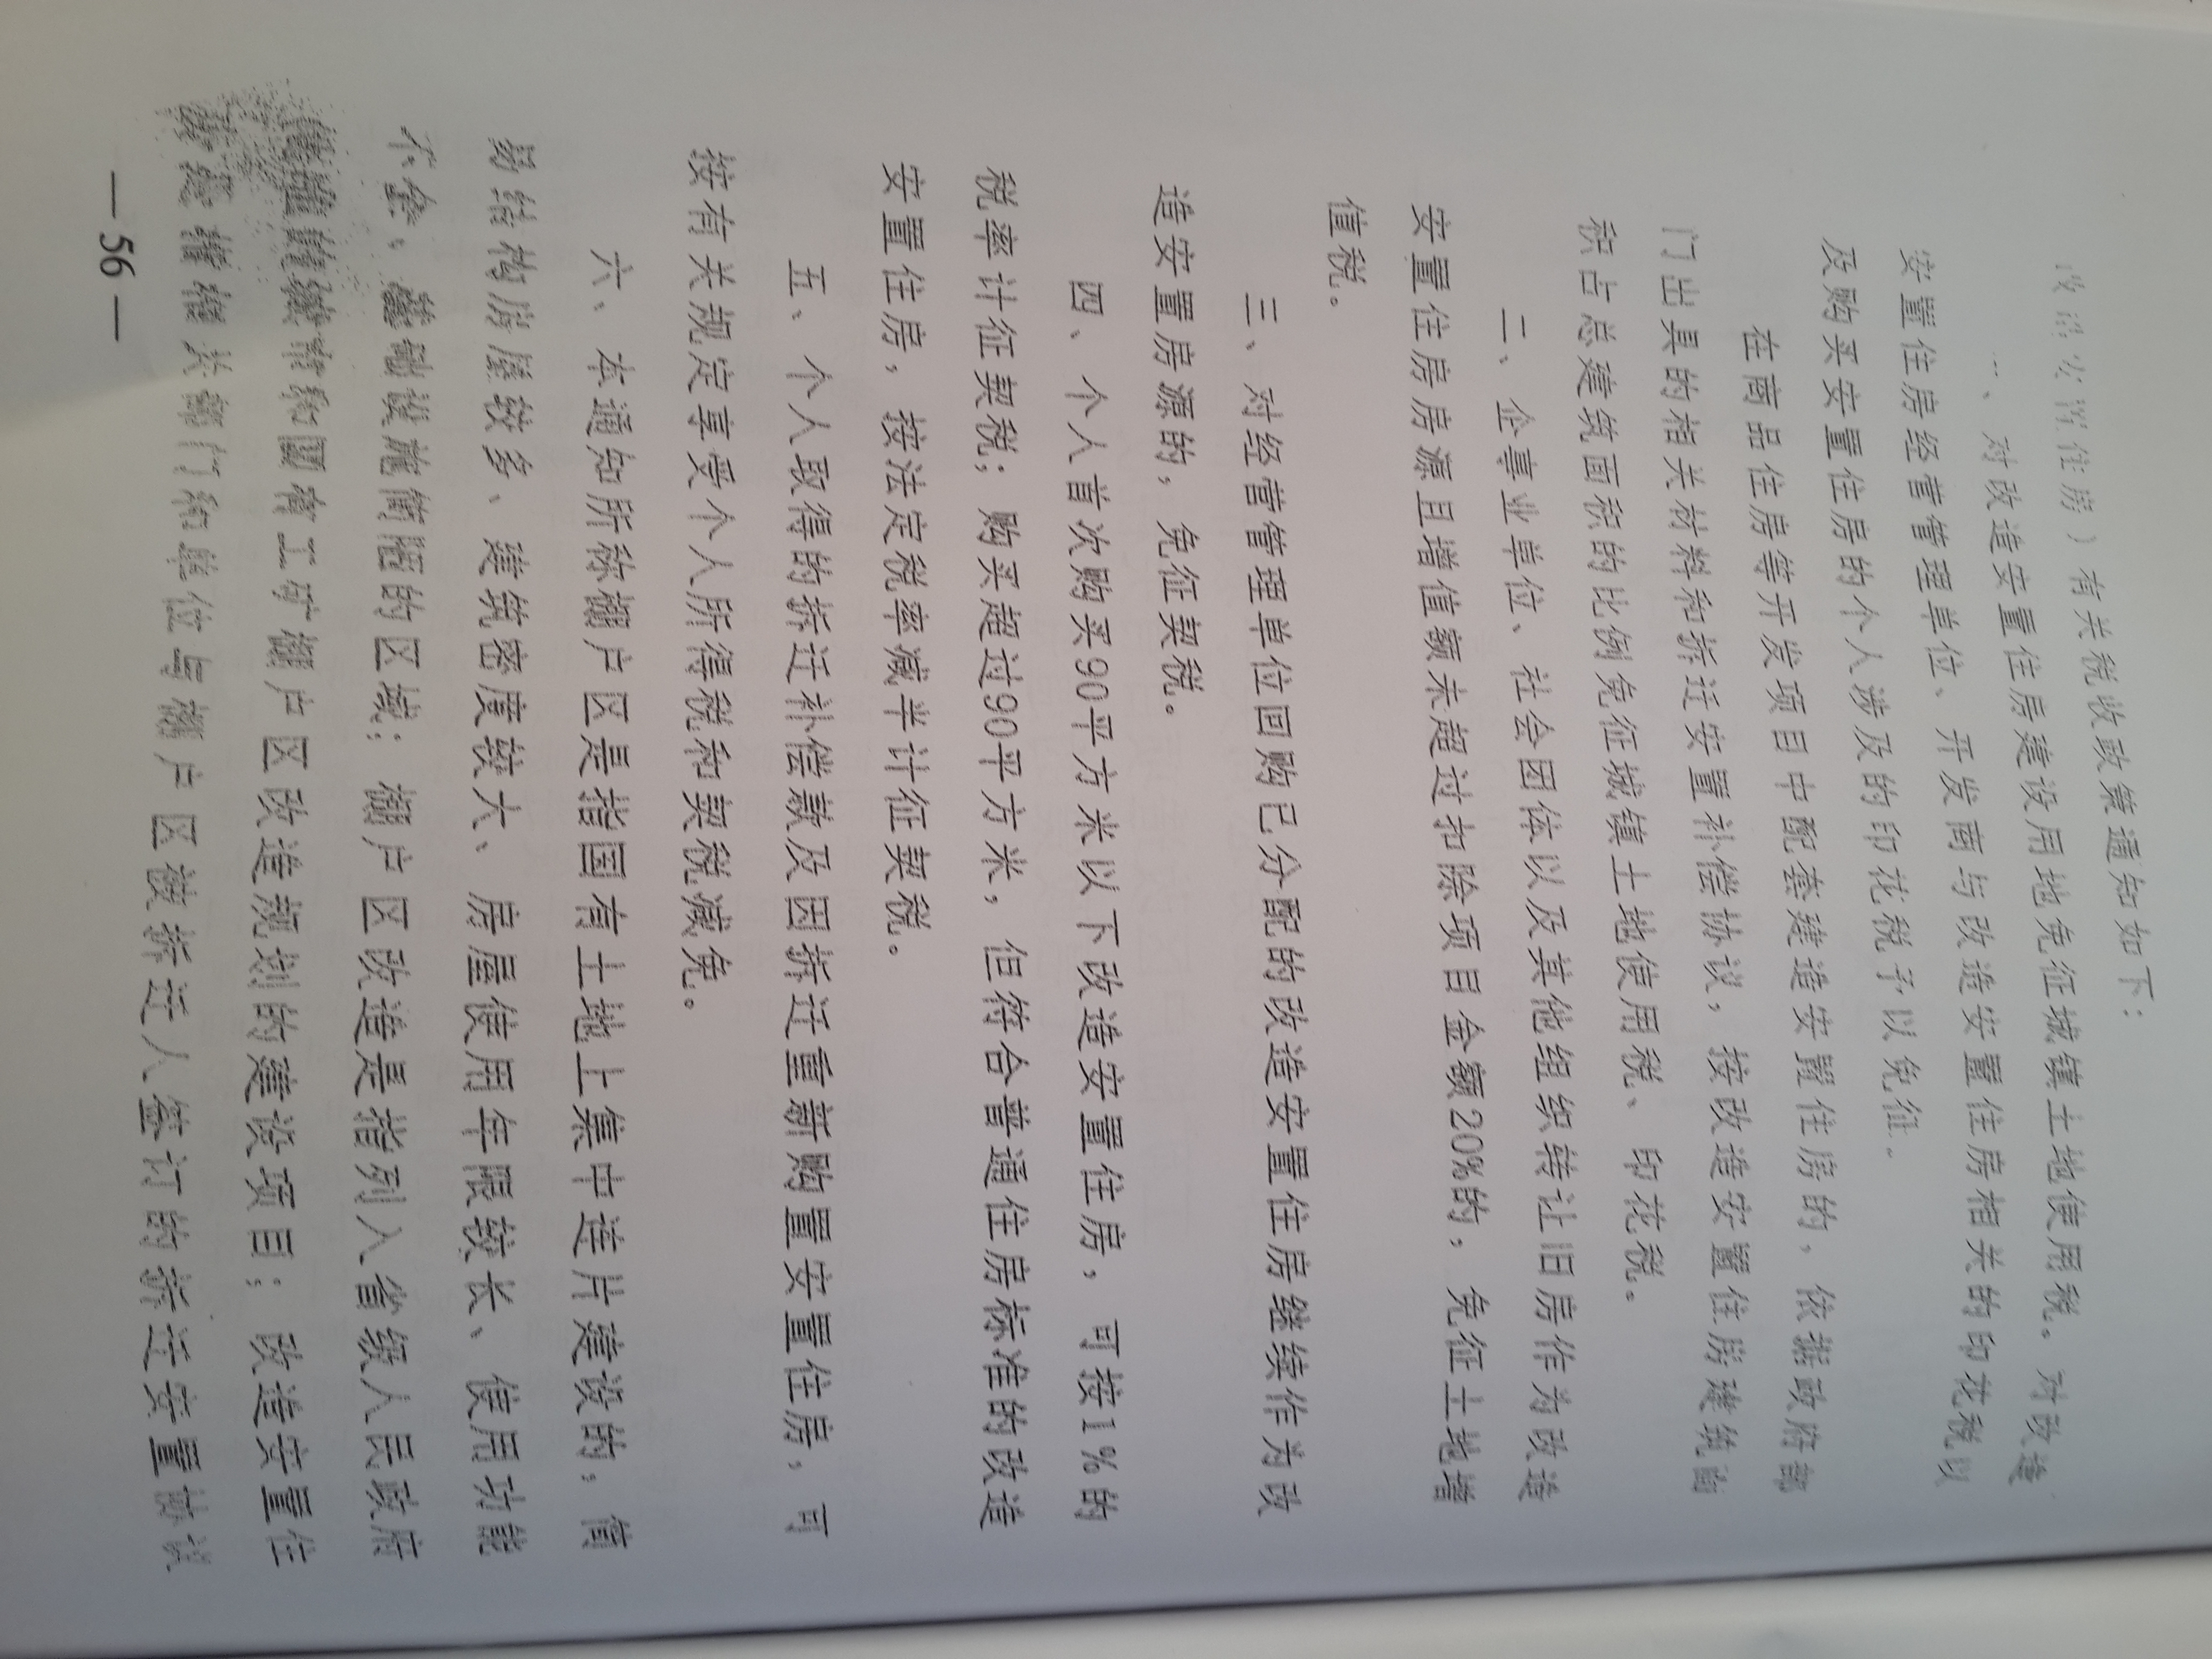 改造安置住房）有关税收政策通知如下：
一、对改造安置住房建设用地免征城镇土地使用税。对改造
安置住房经营管理单位、开发商与改造安置住房相关的印花税以
及购买安置住房的个人涉及的印花税予以免征。
在商品住房等开发项目中配套建造安置住房的，依据政府部
门出具的相关材料和拆迁安置补偿协议，按改造安置住房建筑面
积占总建筑面积的比例免征城镇土地使用税、印花税。
二、企事业单位、社会团体以及其他组织转让旧房作为改造
安置住房房源且增值额未超过扣除项目金额20%的，免征土地增
值税。
三、对经营管理单位回购已分配的改造安置住房继续作为改
造安置房源的，免征契税。
四、个人首次购买90平方米以下改造安置住房，可按1%的
税率计征契税；购买超过90平方米，但符合普通住房标准的改造
安置住房，按法定税率减半计征契税。
五、个人取得的拆迁补偿款及因拆迁重新购置安置住房，可
按有关规定享受个人所得税和契税减免。
六、本通知所称棚户区是指国有土地上集中连片建设的，简
易结构房屋较多、建筑密度较大、房屋使用年限较长、使用功能
不全、基础设施简陋的区域；棚户区改造是指列入省级人民政府
城市和国有工矿棚户区改造规划的建设项目；改造安置住
房是指相关部门和单位与棚户区被拆迁人签订的拆迁安置协议
— 56 —